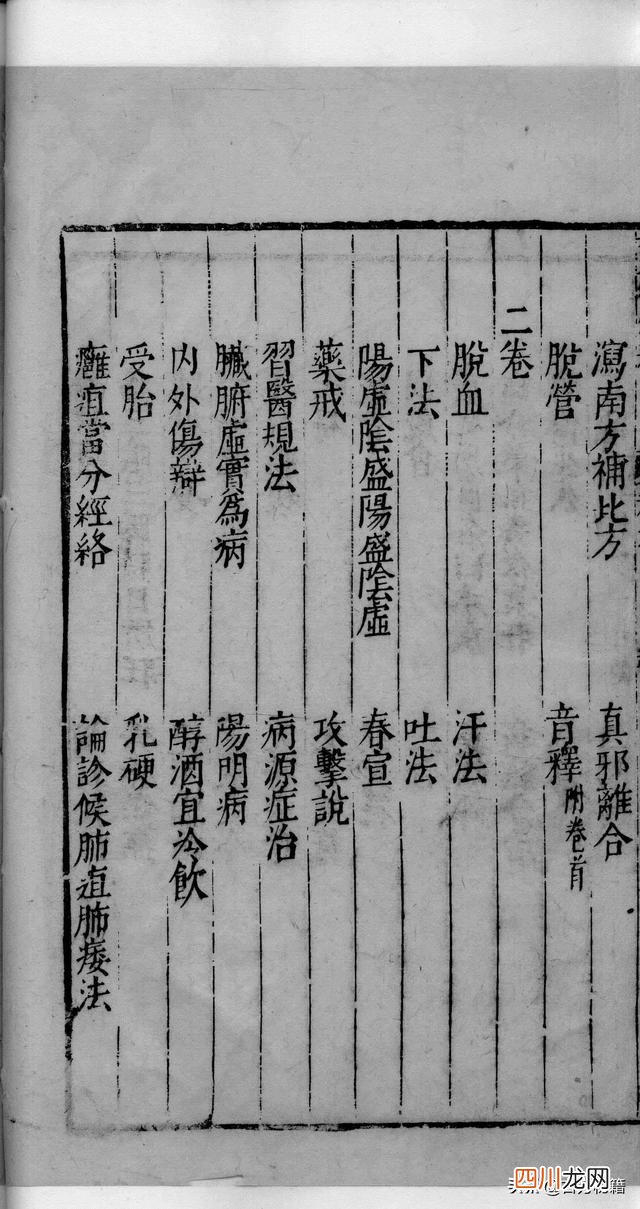 瀉南方補北方　真邪離合
脫營　音釋附卷首
二卷
脫血　汗法
下法　吐法
陽虛陰盛陽盛陰虛　春宣
藥戒　攻擊說
習醫規法　病源症治
臟腑虛實為病　陽明病
內外傷辯　醇酒宜冷飲
受胎　乳硬
癰疽當分經絡　論診候肺疽肺痿法
四川龙网